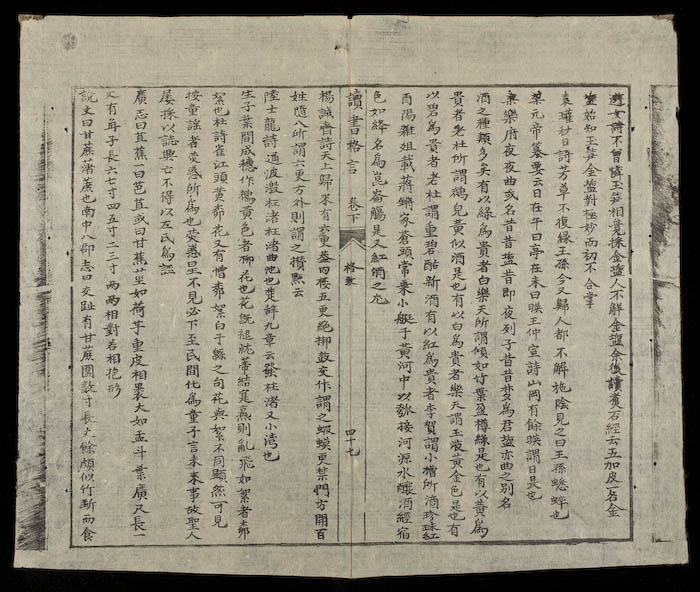 遊女詩不曾憐玉笋相競採金盐人不解金盐余後讀煮石經云五加皮一名金
盐始知玉笋金盐對極妙而初不合掌
袁瓘秋日詩芳草不復緑王孫今又歸人都不解施陰見之曰王孫蟋蟀也
梁元帝纂要云日在午曰亭在未曰映王仲宣詩山岡有餘映謂日昃也
樂府夜夜曲或名昔昔盐昔即夜列子昔昔梦為君盐亦曲之别名
酒之種類多矣有以緑為貴者白樂天所謂傾如竹葉盈樽緑是也有以黄為
貴者老杜所謂鵝兒黄似酒是也有以白為貴者樂天謂玉液黄金色是也有
以碧為貴者老杜謂重碧酤新酒有以紅為貴者李賀謂小槽所酒珍珠紅
酉陽雜俎載蔣鏘家蒼頭常乗小艇于黄河中以瓠接河源水釀酒經宿
色如絳名為崑崙觴是又紅酒之尤
讀書格言 卷下 格致 四十七
楊誠齋詩天上歸來有六更葢四楼五更絶梆鼓交作謂之蝦蟆更禁門方開百
姓隨入所謂六更方外則謂之攢點云
陸士龍詩通波激枉渚枉渚曲池也楚辞九章云發枉渚又小湾也
生子葉間成穗作鵝黄色者柳花也花既褪就蒂結實熟則亂飛如絮者柳
絮也杜詩雀江頭黄柳花又有憎柳絮白于緜之句花與絮不同顯然可見
按童謡者熒惑所為也熒惑星不見必下至民間化為童子言未来事故聖人
屡採以誌興亡不得以左氏為誣
廣志曰芭蕉一曰芭苴或曰甘蕉莖如荷芋重皮相裹大如盂斗葉廣尺長一
丈有角子長六七寸四五寸二三寸两两相對若相抱形
說文曰甘蔗藷蔗也南中八郡志曰交趾有甘蔗圍数寸長丈餘頗似竹斷而食